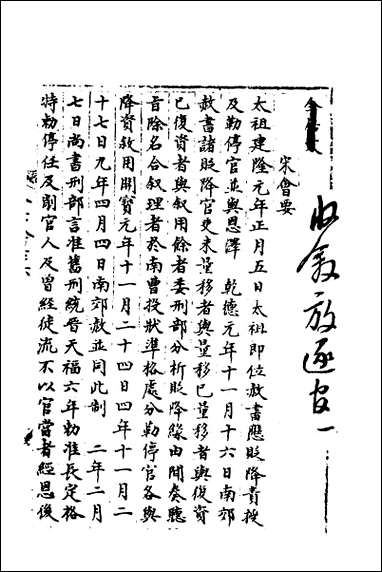 收敘放逐官一
宋會要
太祖建隆元年正月五日太祖即位赦書應貶降責授
及勒停官並與恩澤 乾德元年十一月十六日南郊
赦書諸貶降官吏未量移者與量移已量移者與復資
已復資者與敘用餘者委刑部分析貶降緣由聞奏聽
旨除名合敘理者於南曹投狀準格處分勒停官各與
降資敘用開寶元年十一月二十四日四年十一月二
十七日九年四月四日南郊赦並同此制 二年二月
七日尚書刑部言准舊刑統晉天福六年勅准長定格
特勅停任及削官人及曾經徒流不以官當者經恩後